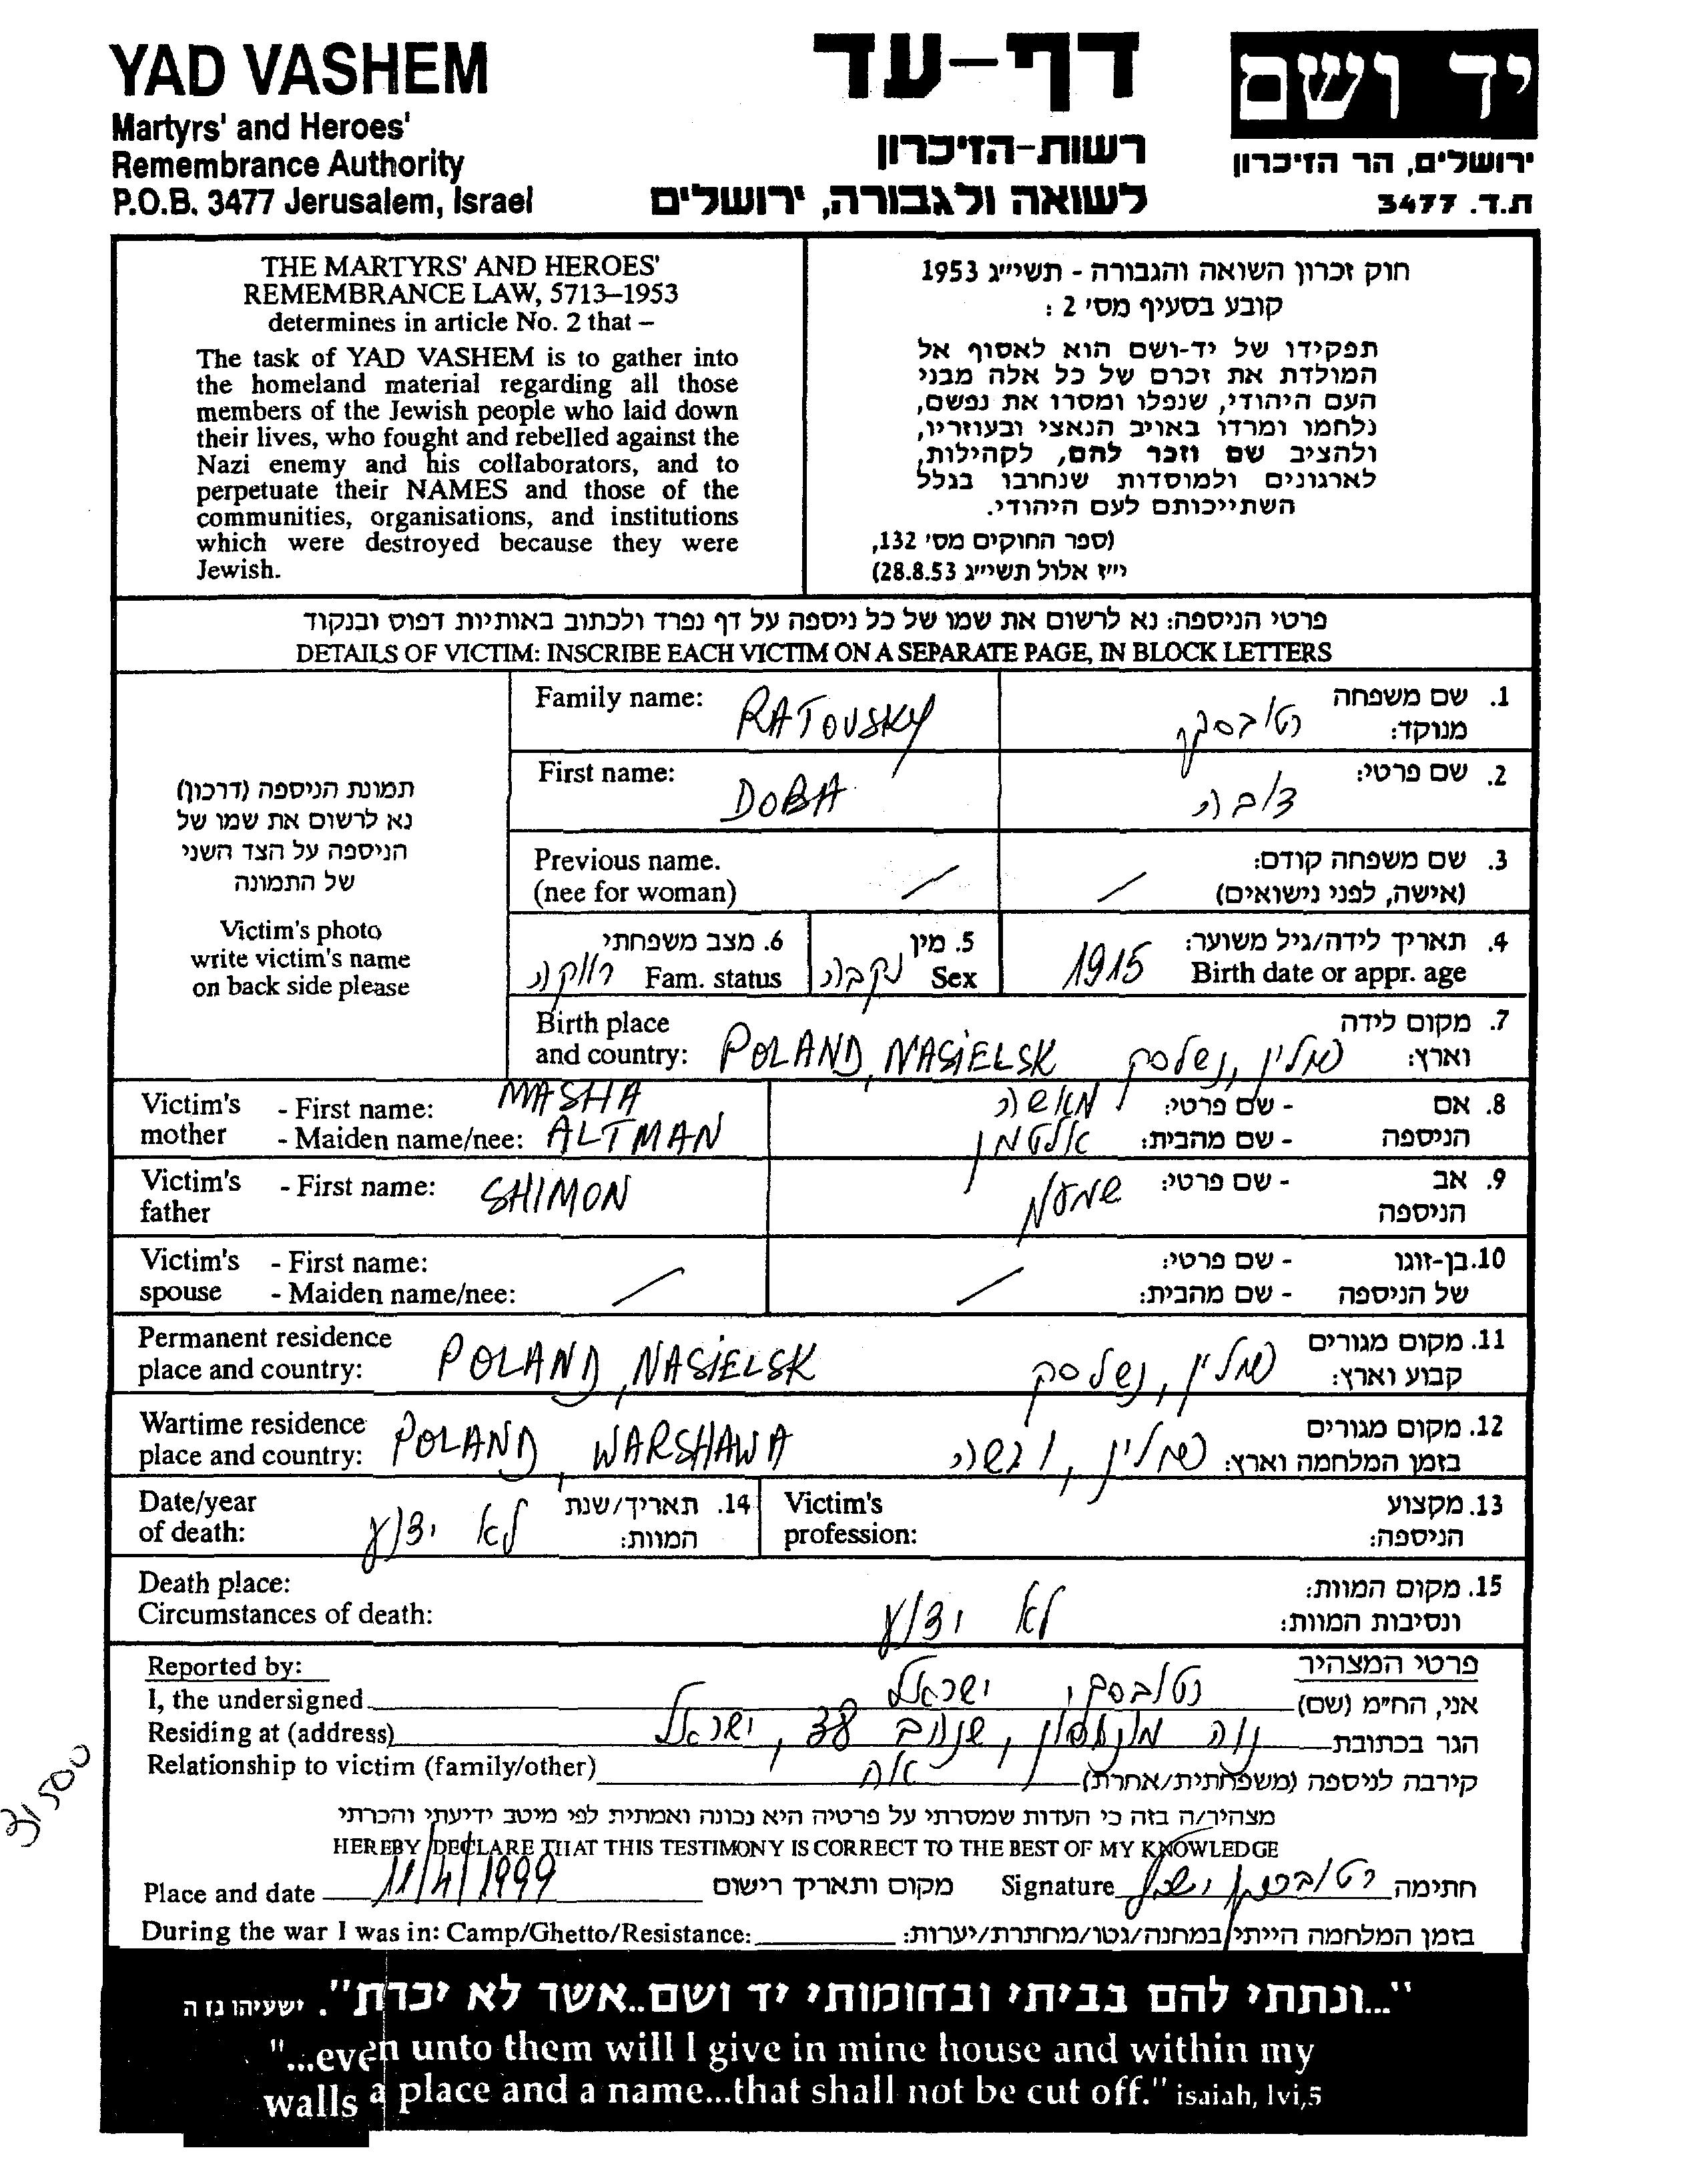 YAD VASHEM
Martyrs' and Heroes'
Remembrance Authority
P.O.B. 3477 Jerusalem, Israel
דף-עד
רשות-הזיכרון
לשואה ולגבורה, ירושלים
יד ושם
ירושלים, הר הזיכרון
ת.ד. 3477
THE MARTYRS' AND HEROES'
REMEMBRANCE LAW, 5713–1953
determines in article No. 2 that –
The task of YAD VASHEM is to gather into
the homeland material regarding all those
members of the Jewish people who laid down
their lives, who fought and rebelled against the
Nazi enemy and his collaborators, and to
perpetuate their NAMES and those of the
communities, organisations, and institutions
which were destroyed because they were
Jewish.
חוק זכרון השואה והגבורה - תשי״ג 1953
קובע בסעיף מס׳ 2 :
תפקידו של יד-ושם הוא לאסוף אל
המולדת את זכרם של כל אלה מבני
העם היהודי, שנפלו ומסרו את נפשם,
נלחמו ומרדו באויב הנאצי ובעוזריו,
ולהציב שם וזכר להם, לקהילות,
לארגונים ולמוסדות שנחרבו בגלל
השתייכותם לעם היהודי.
(ספר החוקים מס׳ 132,
י״ז אלול תשי״ג 28.8.53)
פרטי הניספה: נא לרשום את שמו של כל ניספה על דף נפרד ולכתוב באותיות דפוס ובנקוד
DETAILS OF VICTIM: INSCRIBE EACH VICTIM ON A SEPARATE PAGE, IN BLOCK LETTERS
תמונת הניספה (דרכון)
נא לרשום את שמו של
הניספה על הצד השני
של התמונה
Victim's photo
write victim's name
on back side please
Family name: RATOVSKY רטובסקי 1. שם משפחה
מנוקד:
First name: DOBA דובה 2. שם פרטי:
Previous name. 3. שם משפחה קודם:
(nee for woman) / / (אישה, לפני נישואים)
6. מצב משפחתי 5. מין 4. תאריך לידה/גיל משוער:
רווקה Fam. status נקבה Sex 1915 Birth date or appr. age
Birth place 7. מקום לידה
and country: POLAND, NASIELSK פולין, נשלסק וארץ:
Victim's - First name: MASHA מאשה - שם פרטי: 8. אם
mother - Maiden name/nee: ALTMAN אלטמן - שם מהבית: הניספה
Victim's - First name: SHIMON שמעון - שם פרטי: 9. אב
father הניספה
Victim's - First name: - שם פרטי: 10. בן-זוגו
spouse - Maiden name/nee: / / - שם מהבית: של הניספה
Permanent residence 11. מקום מגורים
place and country: POLAND, NASIELSK פולין, נשלסק קבוע וארץ:
Wartime residence 12. מקום מגורים
place and country: POLAND, WARSHAWA פולין, ורשה בזמן המלחמה וארץ:
Date/year 14. תאריך/שנת Victim's 13. מקצוע
of death: לא ידוע המוות: profession: הניספה:
Death place: 15. מקום המוות:
Circumstances of death: לא ידוע ונסיבות המוות:
Reported by: פרטי המצהיר
I, the undersigned רטובסקי ישראל אני, הח״מ (שם)
Residing at (address) נוה מונוסון, 38, ישראל הגר בכתובת
Relationship to victim (family/other) אח קירבה לניספה (משפחתית/אחרת)
מצהיר/ה בזה כי העדות שמסרתי על פרטיה היא נכונה ואמתית לפי מיטב ידיעתי והכרתי
HEREBY DECLARE THAT THIS TESTIMONY IS CORRECT TO THE BEST OF MY KNOWLEDGE
Place and date 11/4/1999 מקום ותאריך רישום Signature רטובסקי ישראל חתימה
During the war I was in: Camp/Ghetto/Resistance: בזמן המלחמה הייתי במחנה/גטו/מחתרת/יערות:
31500
"...ונתתי להם בביתי ובחומותי יד ושם..אשר לא יכרת". ישעיהו נו ה
"...even unto them will I give in mine house and within my
walls a place and a name...that shall not be cut off." isaiah, lvi,5